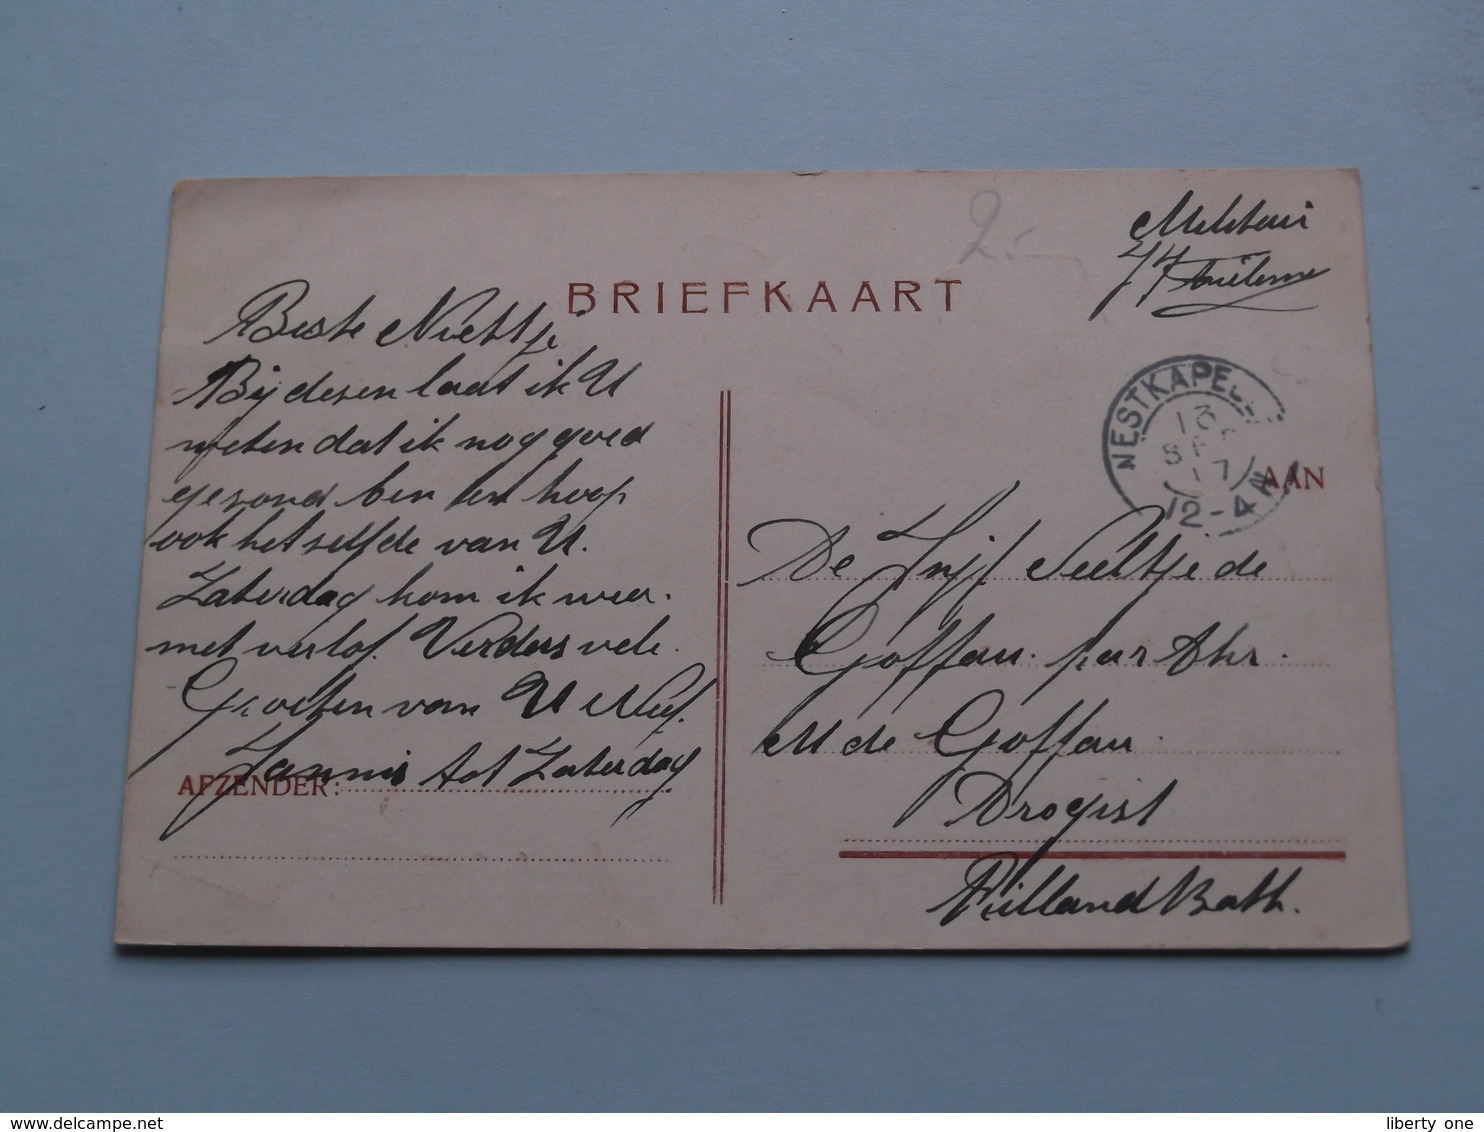 2.-
Militair
BRIEFKAART
Beste Nichtje
Bij desen laat ik U
weten dat ik nog goed
gesond ben en hoop
ook hetselfde van U.
Zaterdag kom ik weer.
met verlof. Verders vele
Groeten van U Neef.
Jannis tot Zaterdag
AFZENDER:
WESTKAPELLE
13
SEP
17
12-4N
AAN
De Juff Neeltje de
Goffau. per Adr.
M de Goffau.
Drogist
Rilland Bath.
liberty one